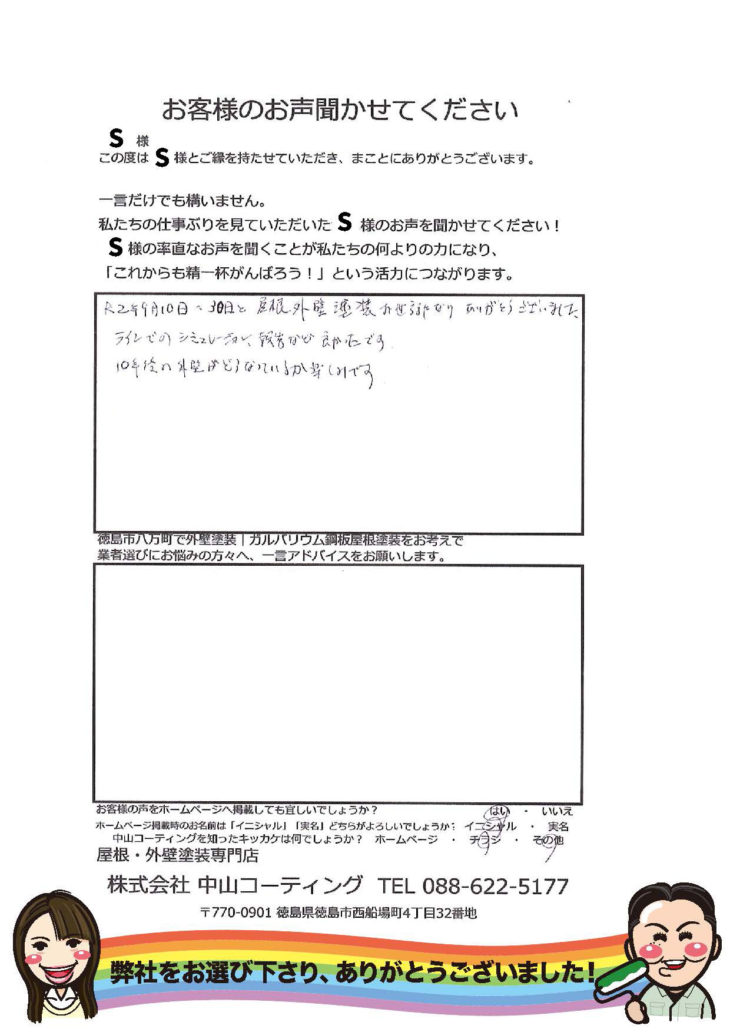 お客様のお声聞かせてください
S 様
この度は S 様とご縁を持たせていただき、まことにありがとうございます。
一言だけでも構いません。
私たちの仕事ぶりを見ていただいた S 様のお声を聞かせてください！
S 様の率直なお声を聞くことが私たちの何よりの力になり、
「これからも精一杯がんばろう！」という活力につながります。
R2年9月10日～30日と 屋根外壁塗装 ありがとうございました
ラインでの シミュレーション、報告など です
10年後の外壁がどうなっているか楽しみです
徳島市八万町で外壁塗装｜ガルバリウム鋼板屋根塗装をお考えで
業者選びにお悩みの方々へ、一言アドバイスをお願いします。
お客様の声をホームページへ掲載しても宜しいでしょうか？ はい ・ いいえ
ホームページ掲載時のお名前は「イニシャル」「実名」どちらがよろしいでしょうか？ イニシャル ・ 実名
中山コーティングを知ったキッカケは何でしょうか？ ホームページ ・ チラシ ・ その他
屋根・外壁塗装専門店
株式会社 中山コーティング TEL 088-622-5177
〒770-0901 徳島県徳島市西船場町4丁目32番地
弊社をお選び下さり、ありがとうございました！